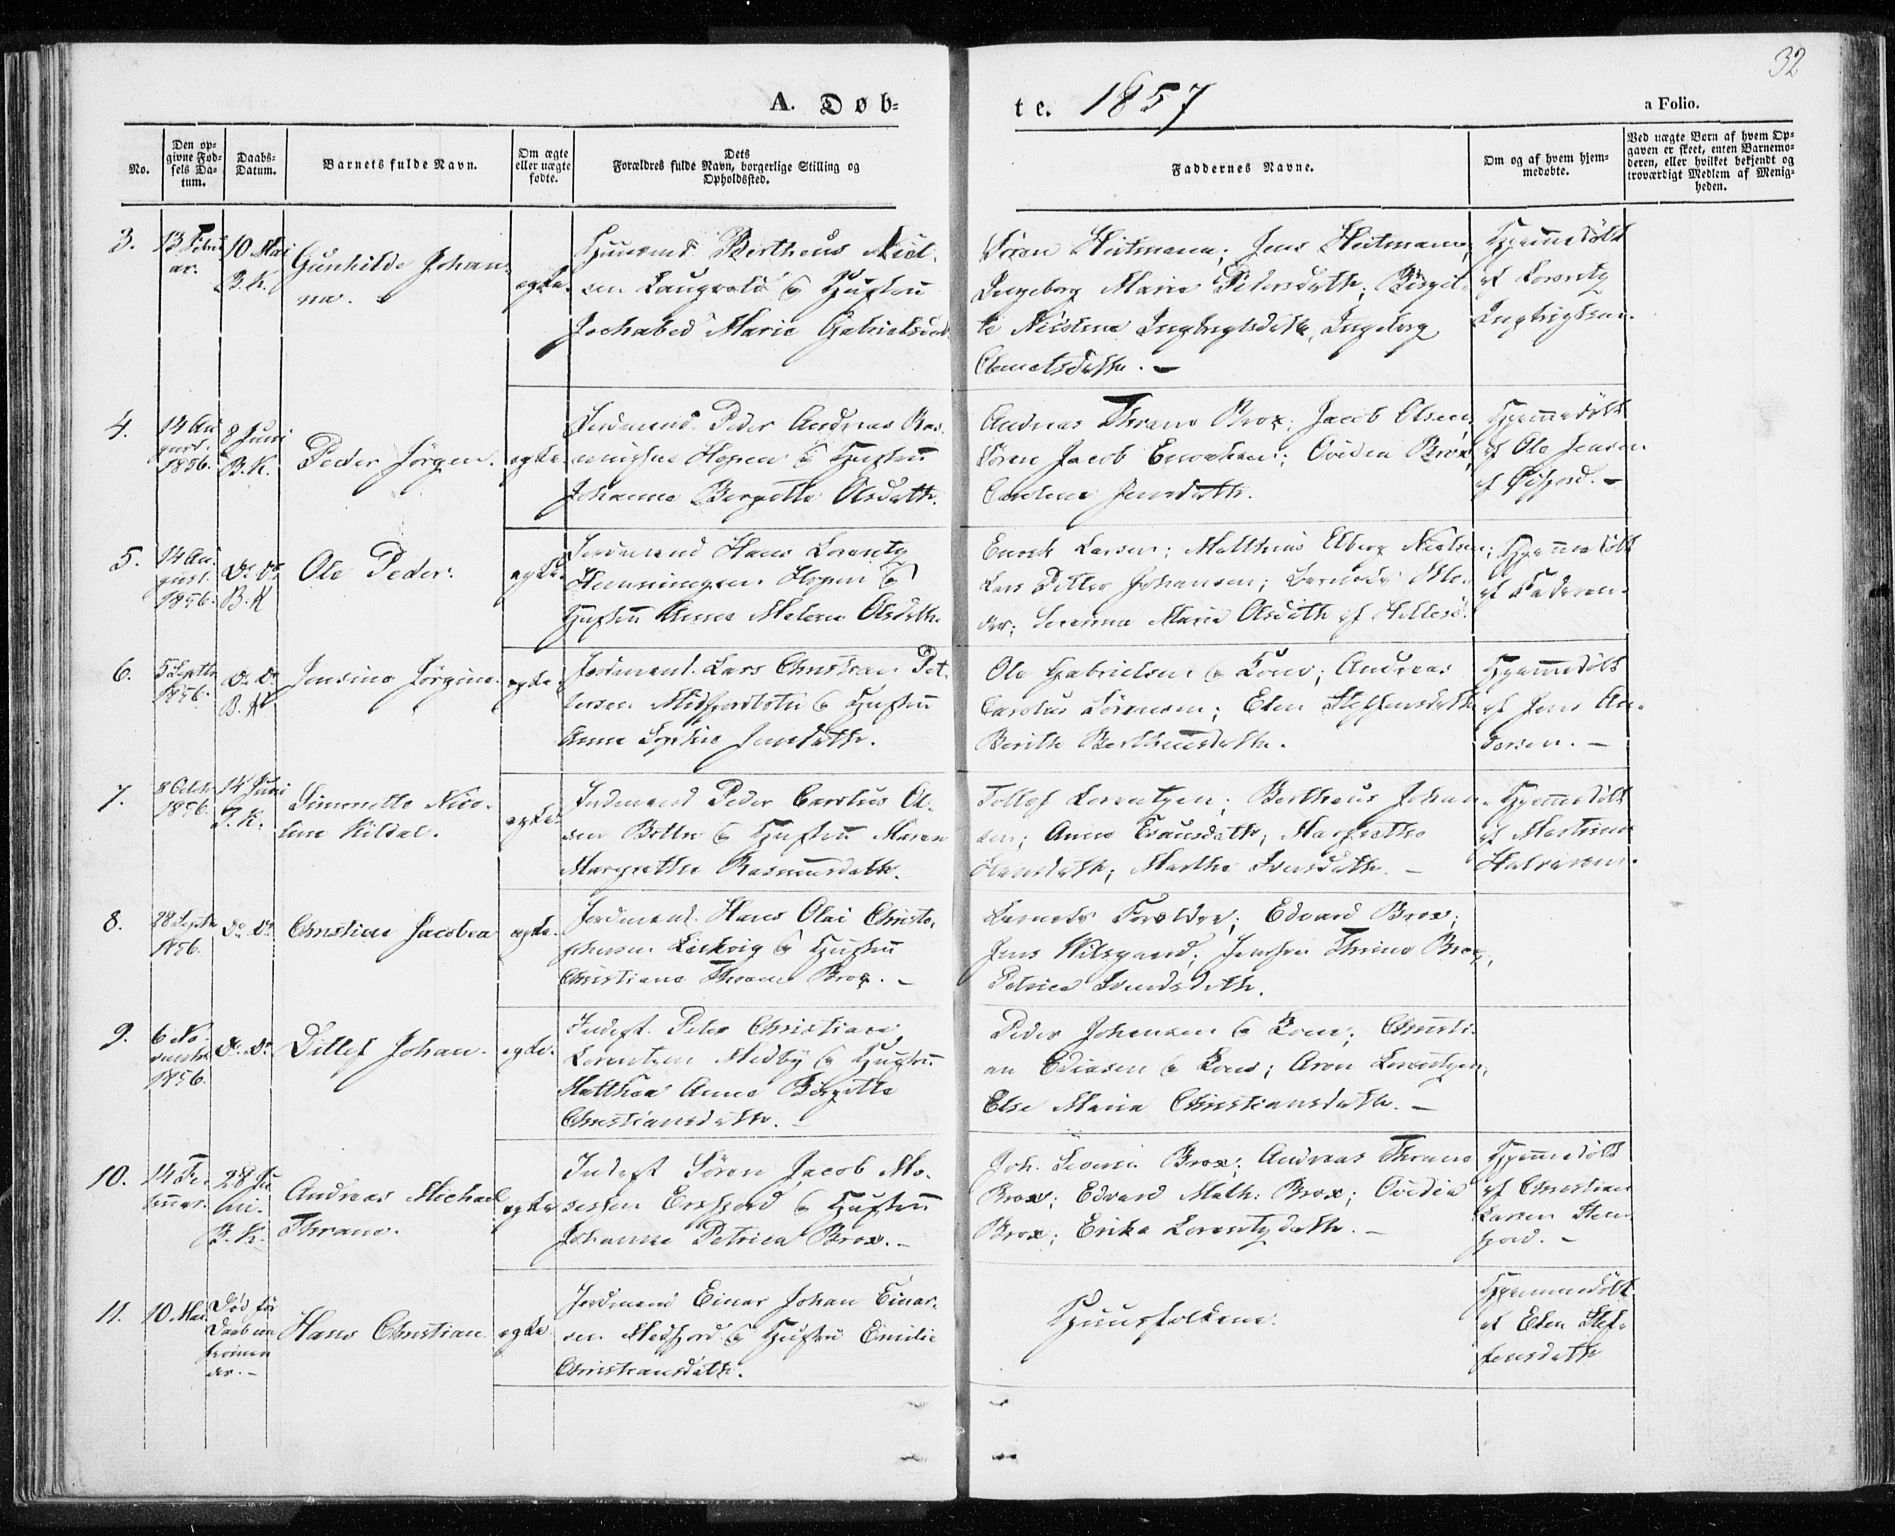 32
A. Døb-
te. 1857
a Folio.
No.
Den op-
givne Fød-
sels Da-
tum.
Daabs-
Datum.
Barnets fulde Navn.
Om ægte
eller uægte
fødte.
Dets
Forældres fulde Navn, borgerlige Stilling og
Opholdssted.
Faddernes Navne.
Om og af hvem hjem-
medøbte.
Ved uægte Børn af hvem Op-
gaven er skeet, enten Barnemo-
deren, eller hvilket bekjendt og
troværdigt Medlem af Menig-
heden.
3.
13 Febru
ar.
10 Mai
B.K.
Gunhilde Johan-
na.
ægte.
Huusmd. Bertheus Niel-
sen Laugvold & Hustru
Jochabed Marie Gabrielsdat
Søren Heitmann; Jens Heitmann;
Ingeborg Marie Petersdatter; Birgit-
te Nicoline Ingbrigtsdatter, Ingeborg
Clemetsdatter. -
Hjemmedøbt
af Lorentz
Ingbrigtsen.
4.
14 Au
gust.
1856.
8 Juni
B.K.
Peder Jørgen.
ægte
Jordmand Peder Andreas Ras-
mussen Hopen & Hustru
Johanna Bergitte Olsdatter.
Andreas Thrane Brox; Jacob Olsen
Søren Jacob Enochsen; Ovidia Brox,
Caroline Jensdatter.
Hjemmedøbt
af Ole Jensen
af Øifjord. -
5.
14 Au-
gust.
1856.
do. do.
B.K
Ole Peder.
ægte.
Jordmand Hans Lorentz
Henningsen Hopen &
Hustru Anne Malene Olsdatter.
Enoch Larsen; Matthias Elberg Nielsen;
Lars Petter Johansen; Barnets Mo-
der; Lorenna Maria Olsdatter af Hellesø.
Hjemmedøbt
af Faderen.
6.
5 Septbr
1856.
do. do.
B.K
Jensine Jørgine.
ægte.
Jordmand. Lars Christian Pet-
tersen Midfjordbotn & Hustru
Anne Sophie Jensdatter.
Ole Gabrielsen & Kone; Andreas
Carolus Sørensen; Elen Steffensdatter
Berith Bertheusdatter.
Hjemmedøbt
af Jens An-
dersen. -
7.
8 Octob.
1856.
14 Juni
T.K.
Simonette Nico-
line Kildal.
ægte.
Jordmand Peder Carolus Ol-
sen Botten & Hustru Maren
Margrethe Rasmusdatter.
Tollef Lorentzen; Bertheus Johan-
sen; Anne Evensdatter; Margrethe
Hansdatter; Marthe Iversdatter. -
Hjemmedøbt
af Martinus
Halvorsen.
8.
28 Septbr
1856.
do. do.
Christine Jacobea
ægte.
Jordmand. Hans Olai Christo-
phersen Leikvig & Hustru
Christiane Thrane Brox. -
Barnets Forældre; Edvard Brox;
Jens Nilsgaard; Thrine Brox,
Petrica Svendsdatter.
9.
6 No-
vember
1856.
do. do.
Ditlef Johan.
ægte.
Inderst. Peter Christian
Lorentzen Medby & Hustru
Matthea Anna Birgitte
Christiansdatter.
Peder Johansen & Kone; Christi-
an Ediasen & Kone; Aron Lorentzen,
Else Maria Christiansdatter. -
10.
14 Fe-
bruar.
28 Ju
ni.
B.K.
Andreas Michael
Thrane.
ægte
Inderst Søren Jacob Mo-
sessen Ersfjord & Hustru
Johanna Petrica Brox. -
Joh. Brox; Andreas Thrane
Brox; Edvard Math: Brox; Ovidia
Brox; Erika Lorentzdatter. -
Hjemmedøbt
af Christian
Larsen Stens-
fjord. -
11.
10. Mai
Død før
Daab
Hans Christian
ægte
Jordmand Einar Johan Einar-
sen Medfjord & Hustru Emilie
Christiansdatter.
Huusfolkene.
Hjemmedøbt
af Elen Stef-
fensdatter